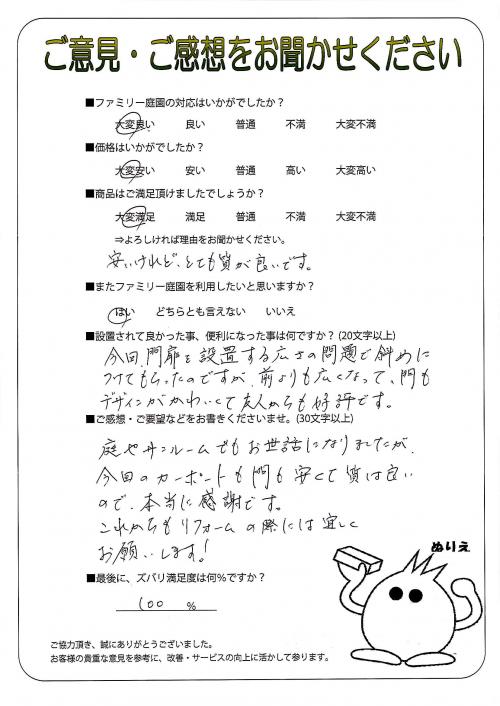 ご意見・ご感想をお聞かせください
■ファミリー庭園の対応はいかがでしたか？
大変良い 良い 普通 不満 大変不満
■価格はいかがでしたか？
大変安い 安い 普通 高い 大変高い
■商品はご満足頂けましたでしょうか？
大変満足 満足 普通 不満 大変不満
⇒よろしければ理由をお聞かせください。
安いけれど、とても質が良いです。
■またファミリー庭園を利用したいと思いますか？
はい どちらとも言えない いいえ
■設置されて良かった事、便利になった事は何ですか？(20文字以上)
今回、門扉を設置する広さの問題で斜めに
つけてもらったのですが、前よりも広くなって、門も
デザインがかわいくて友人からも好評です。
■ご感想・ご要望などをお書きくださいませ。(30文字以上)
庭やサンルームでもお世話になりましたが、
今回のカーポートも門も安くて質は良い
ので、本当に感謝です。
これからもリフォームの際には宜しく
お願いします!
ぬりえ
■最後に、ズバリ満足度は何％ですか？
100 %
ご協力頂き、誠にありがとうございました。
お客様の貴重な意見を参考に、改善・サービスの向上に活かして参ります。